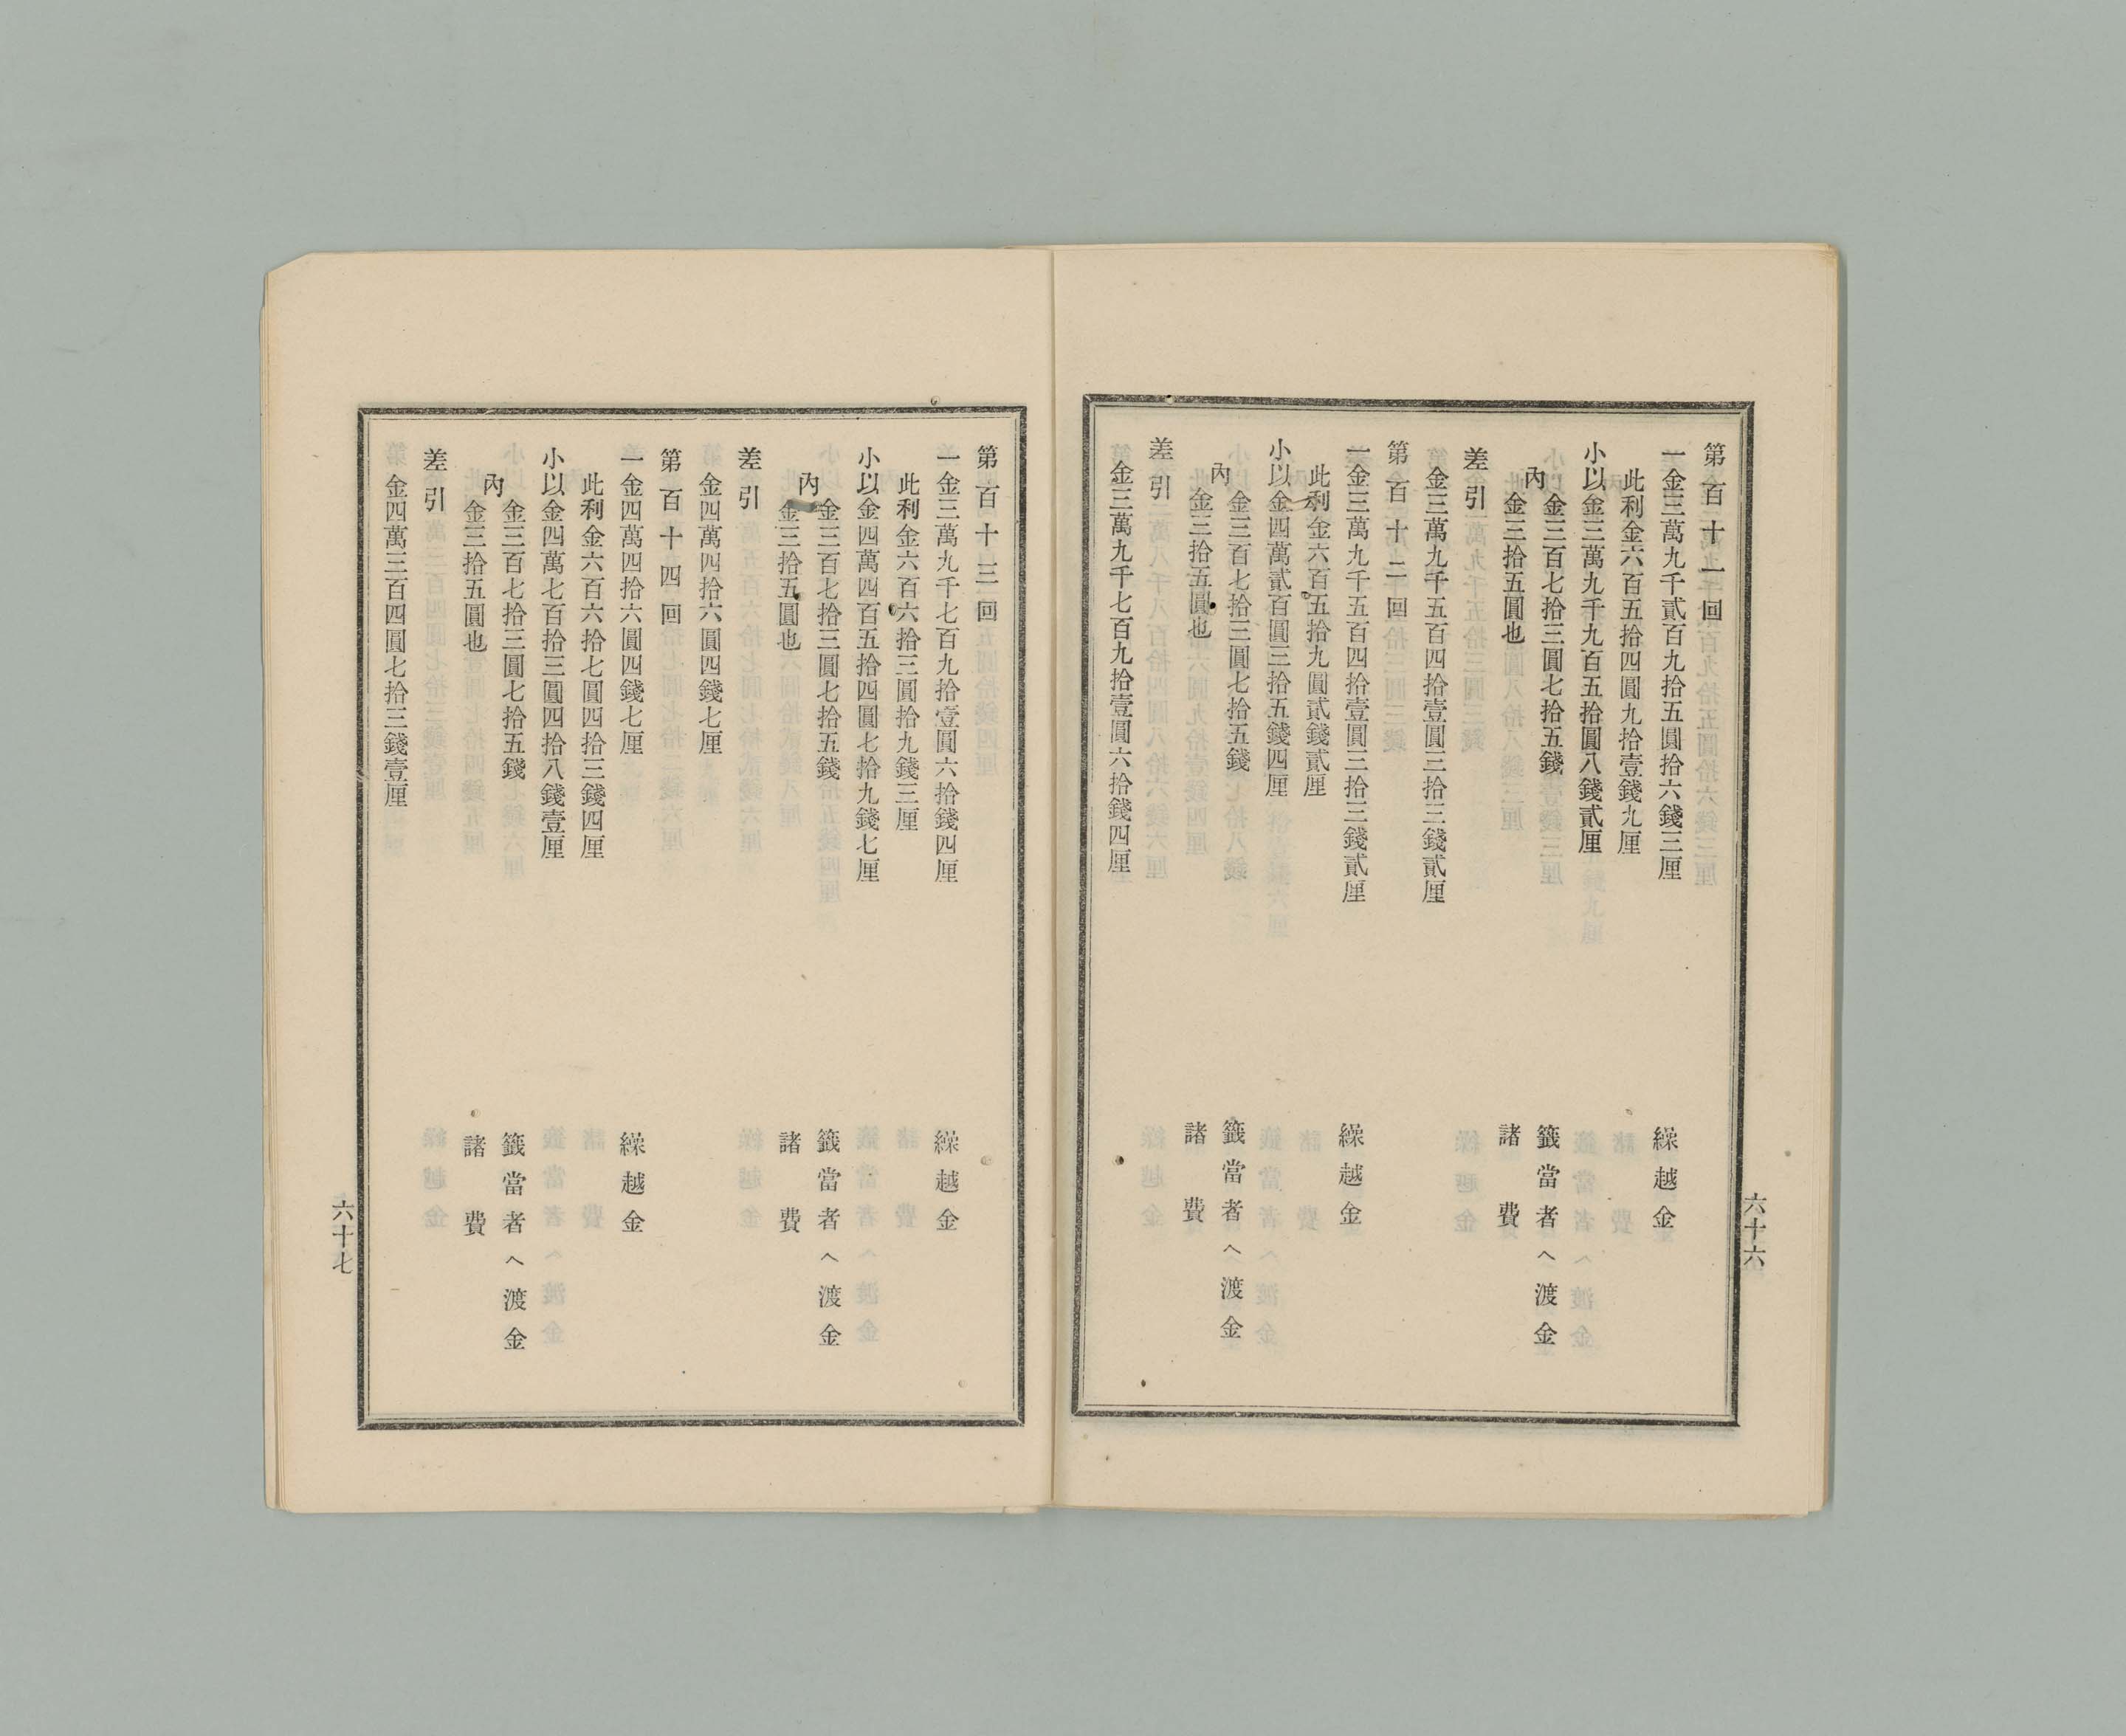 第百十一回
一金三萬九千貳百九拾五圓拾六錢三厘 繰越金
此利金六百五拾四圓九拾壹錢九厘
小以金三萬九千九百五拾圓八錢貳厘
內 金三百七拾三圓七拾五錢 籤當者へ渡金
金三拾五圓也 諸費
差引
金三萬九千五百四拾壹圓三拾三錢貳厘
第百十二回
一金三萬九千五百四拾壹圓三拾三錢貳厘 繰越金
此利金六百五拾九圓貳錢貳厘
小以金四萬貳百圓三拾五錢四厘
內 金三百七拾三圓七拾五錢 籤當者へ渡金
金三拾五圓也 諸費
差引
金三萬九千七百九拾壹圓六拾錢四厘
六十六
第百十三回
一金三萬九千七百九拾壹圓六拾錢四厘 繰越金
此利金六百六拾三圓拾九錢三厘
小以金四萬四百五拾四圓七拾九錢七厘
內 金三百七拾三圓七拾五錢 籤當者へ渡金
金三拾五圓也 諸費
差引
金四萬四拾六圓四錢七厘
第百十四回
一金四萬四拾六圓四錢七厘 繰越金
此利金六百六拾七圓四拾三錢四厘
小以金四萬七百拾三圓四拾八錢壹厘
內 金三百七拾三圓七拾五錢 籤當者へ渡金
金三拾五圓也 諸費
差引
金四萬三百四圓七拾三錢壹厘
六十七